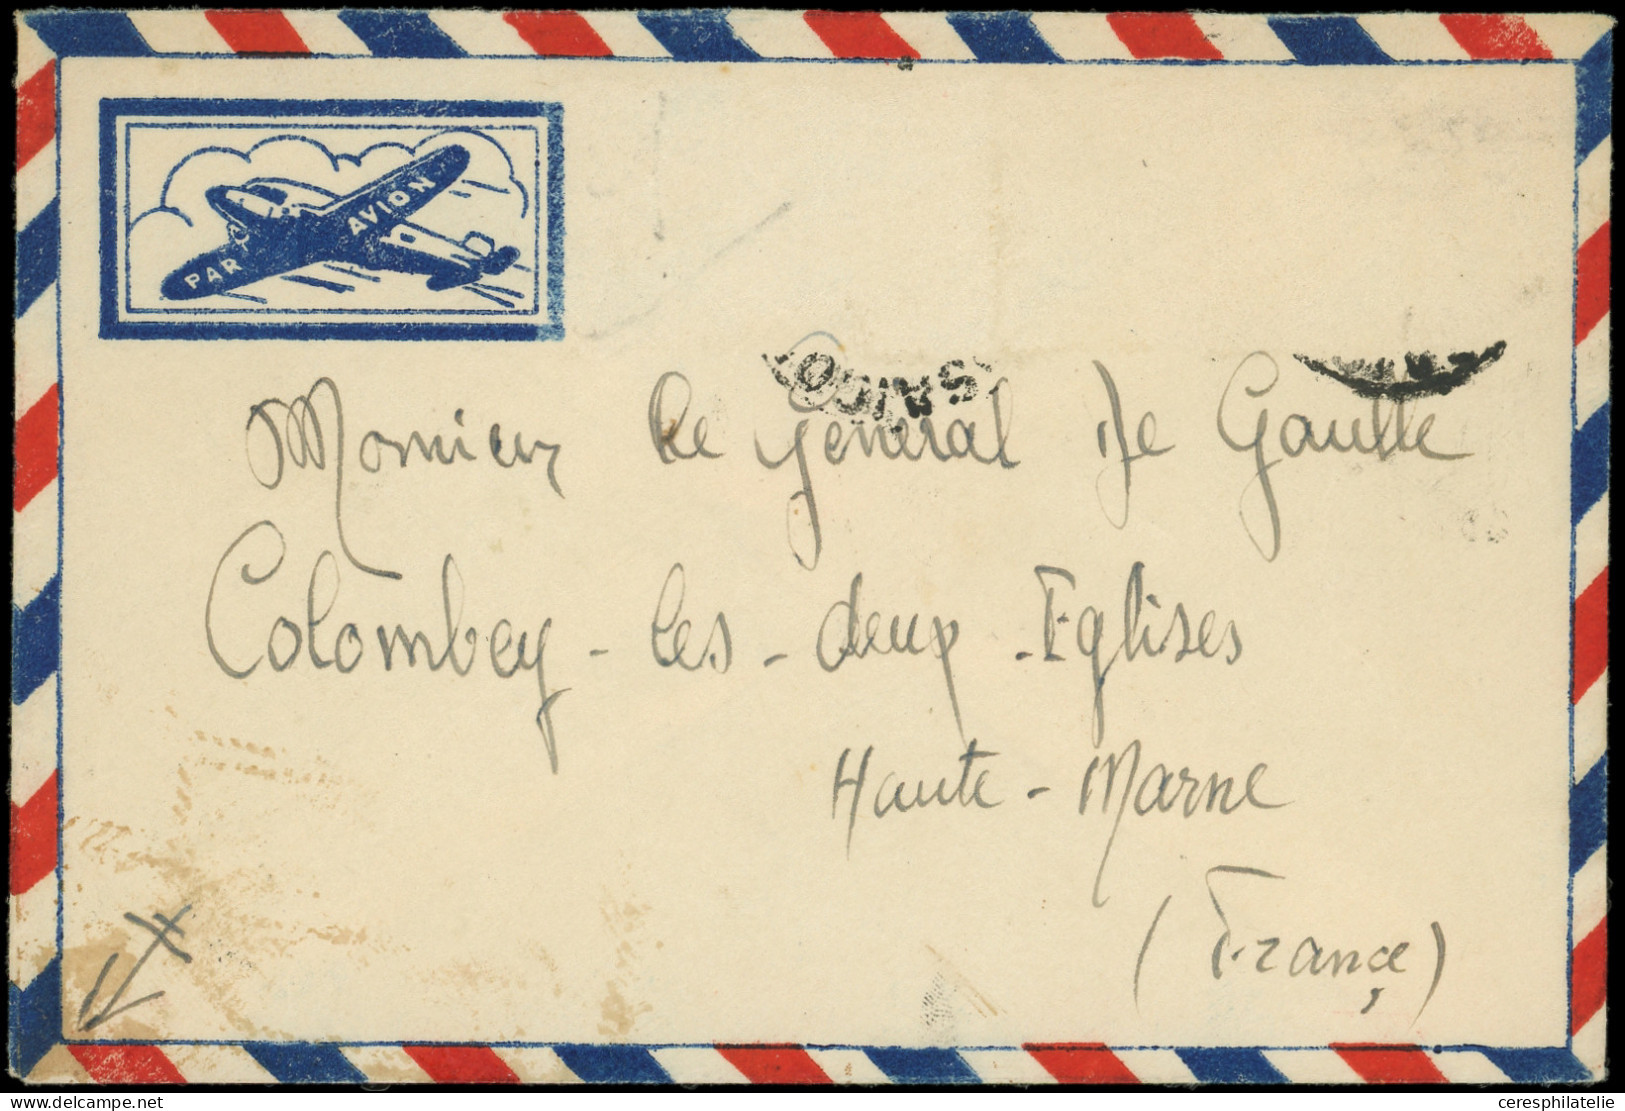 PAR AVION
Monsieur le Général De Gaulle
Colombey-les-deux-Eglises
Haute-Marne
(France)
ceresphilatelie